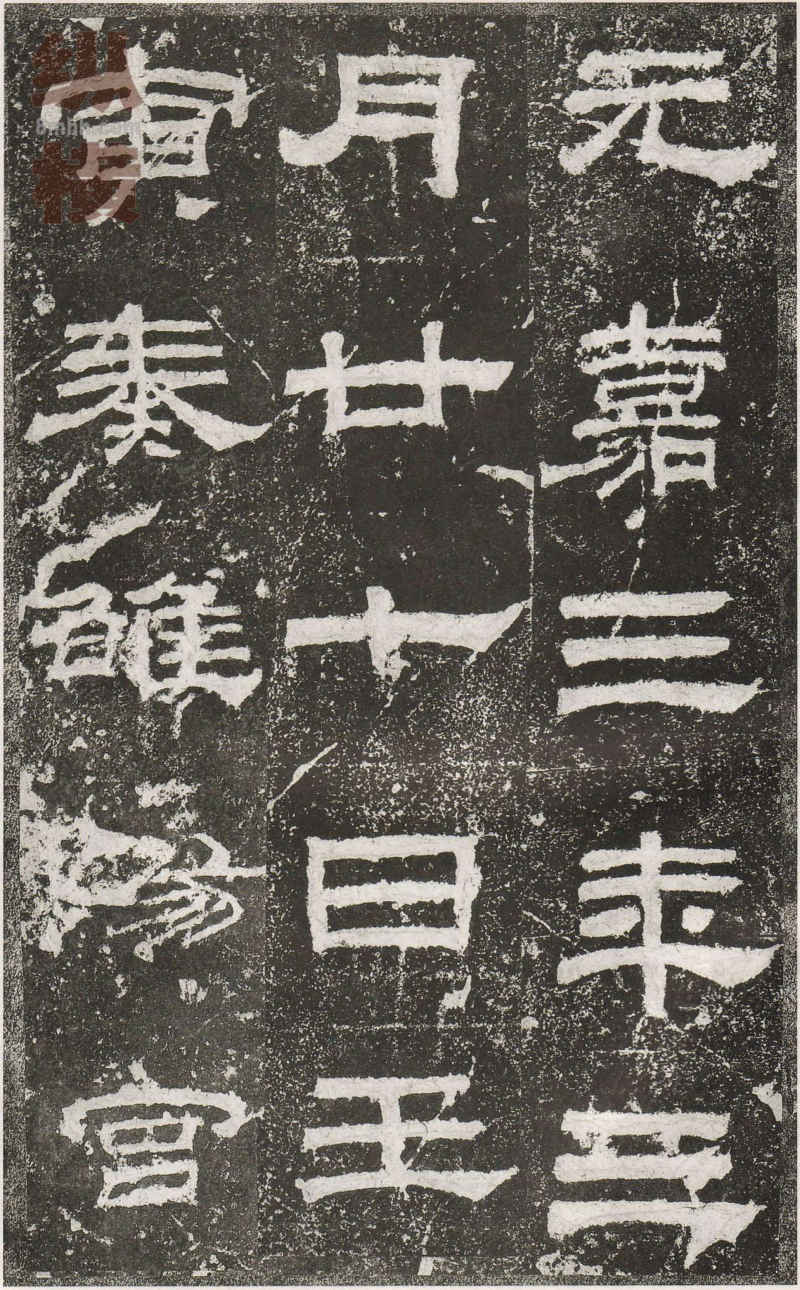 元嘉三年三
月廿七日壬
寅奏雒陽宫